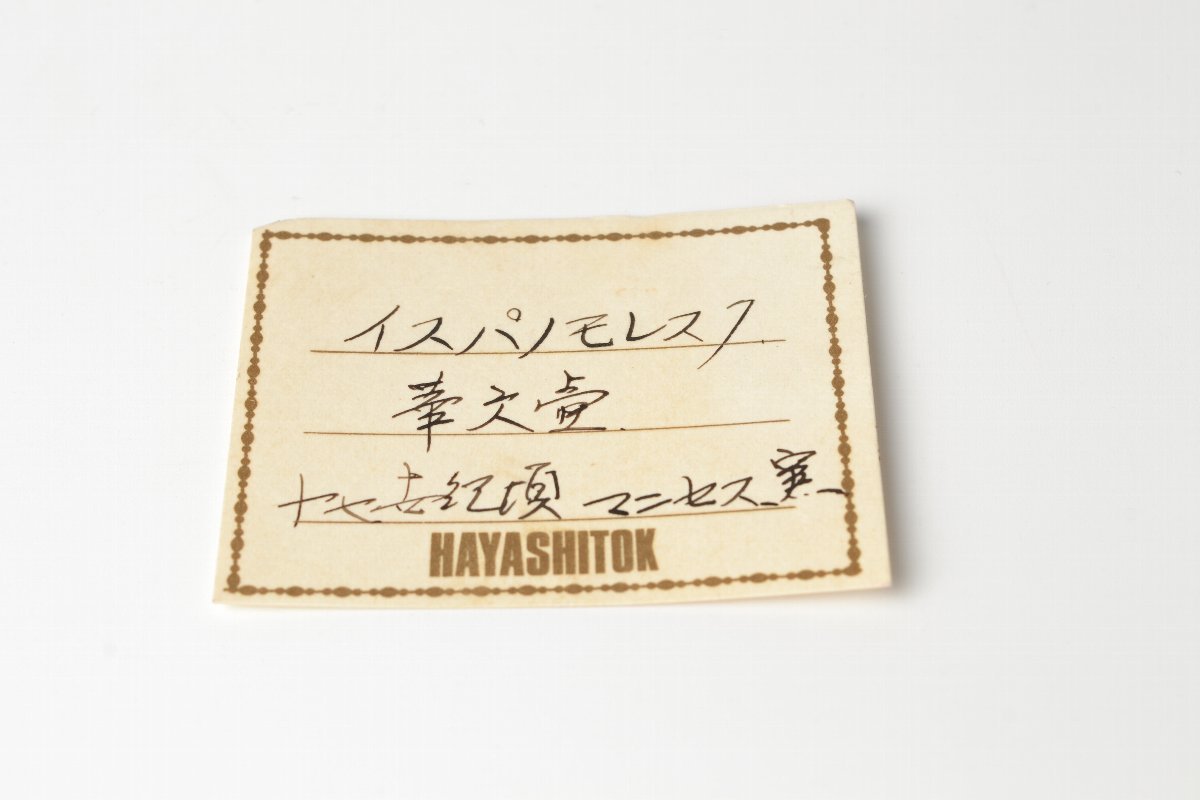 イスパノモレスク.
華文壺.
十七世紀頃 マニセス窯
HAYASHITOK